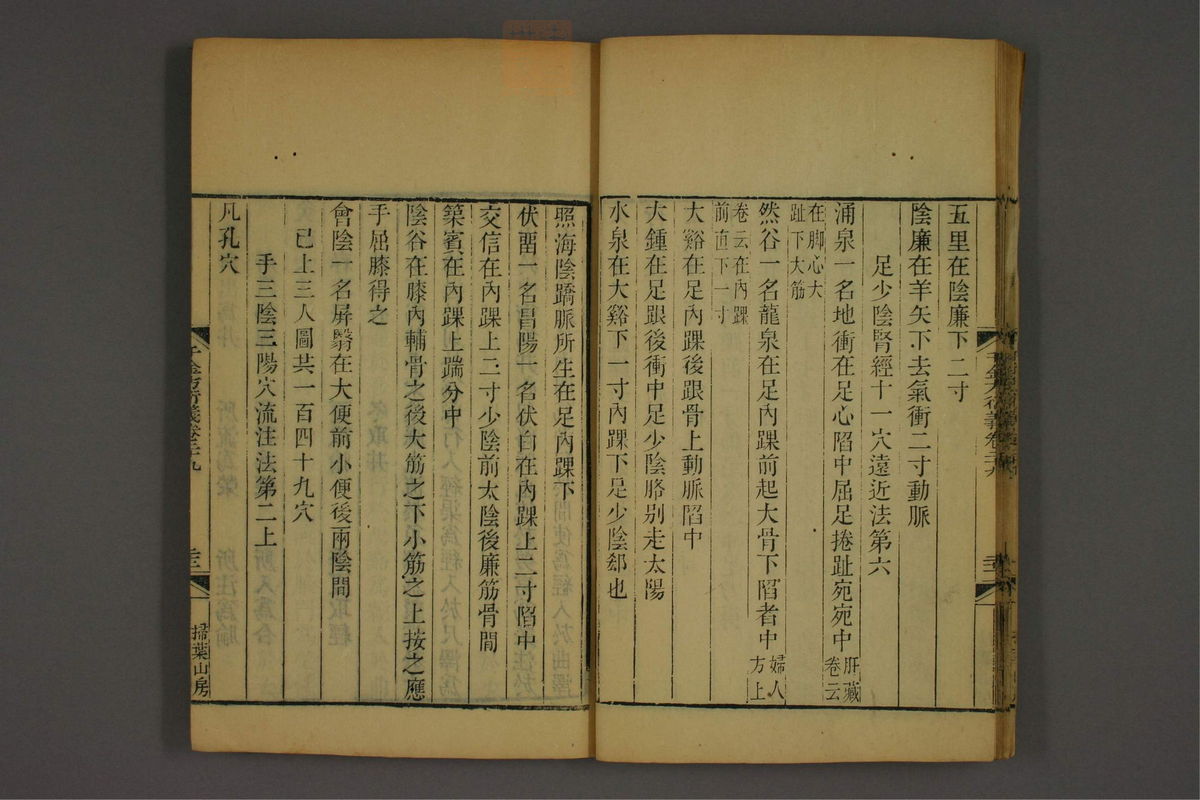 五里在陰廉下二寸
陰廉在羊矢下去氣衝二寸動脈
足少陰腎經十一穴遠近法第六
涌泉一名地衝在足心陷中屈足捲趾宛宛中肝藏卷云
在脚心大趾下大筋
然谷一名龍泉在足內踝前起大骨下陷者中婦人方上
卷云在內踝前直下一寸
大谿在足內踝後跟骨上動脈陷中
大鍾在足跟後衝中足少陰胳别走太陽
水泉在大谿下一寸內踝下是少陰郄也
照海陰蹻脈所生在足內踝下
伏畱一名昌陽一名伏白在內踝上二寸陷中
交信在內踝上二寸少陰前太陰後廉筋骨間
築賓在內踝上踹分中
陰谷在膝內輔骨之後大筋之下小筋之上按之應
手屈膝得之
會陰一名屏翳在大便前小便後兩陰間
己上三人圖共一百四十九穴
手三陰三陽穴流注法第二上
凡孔穴
千金方衍義卷二十九
三三
掃葉山房